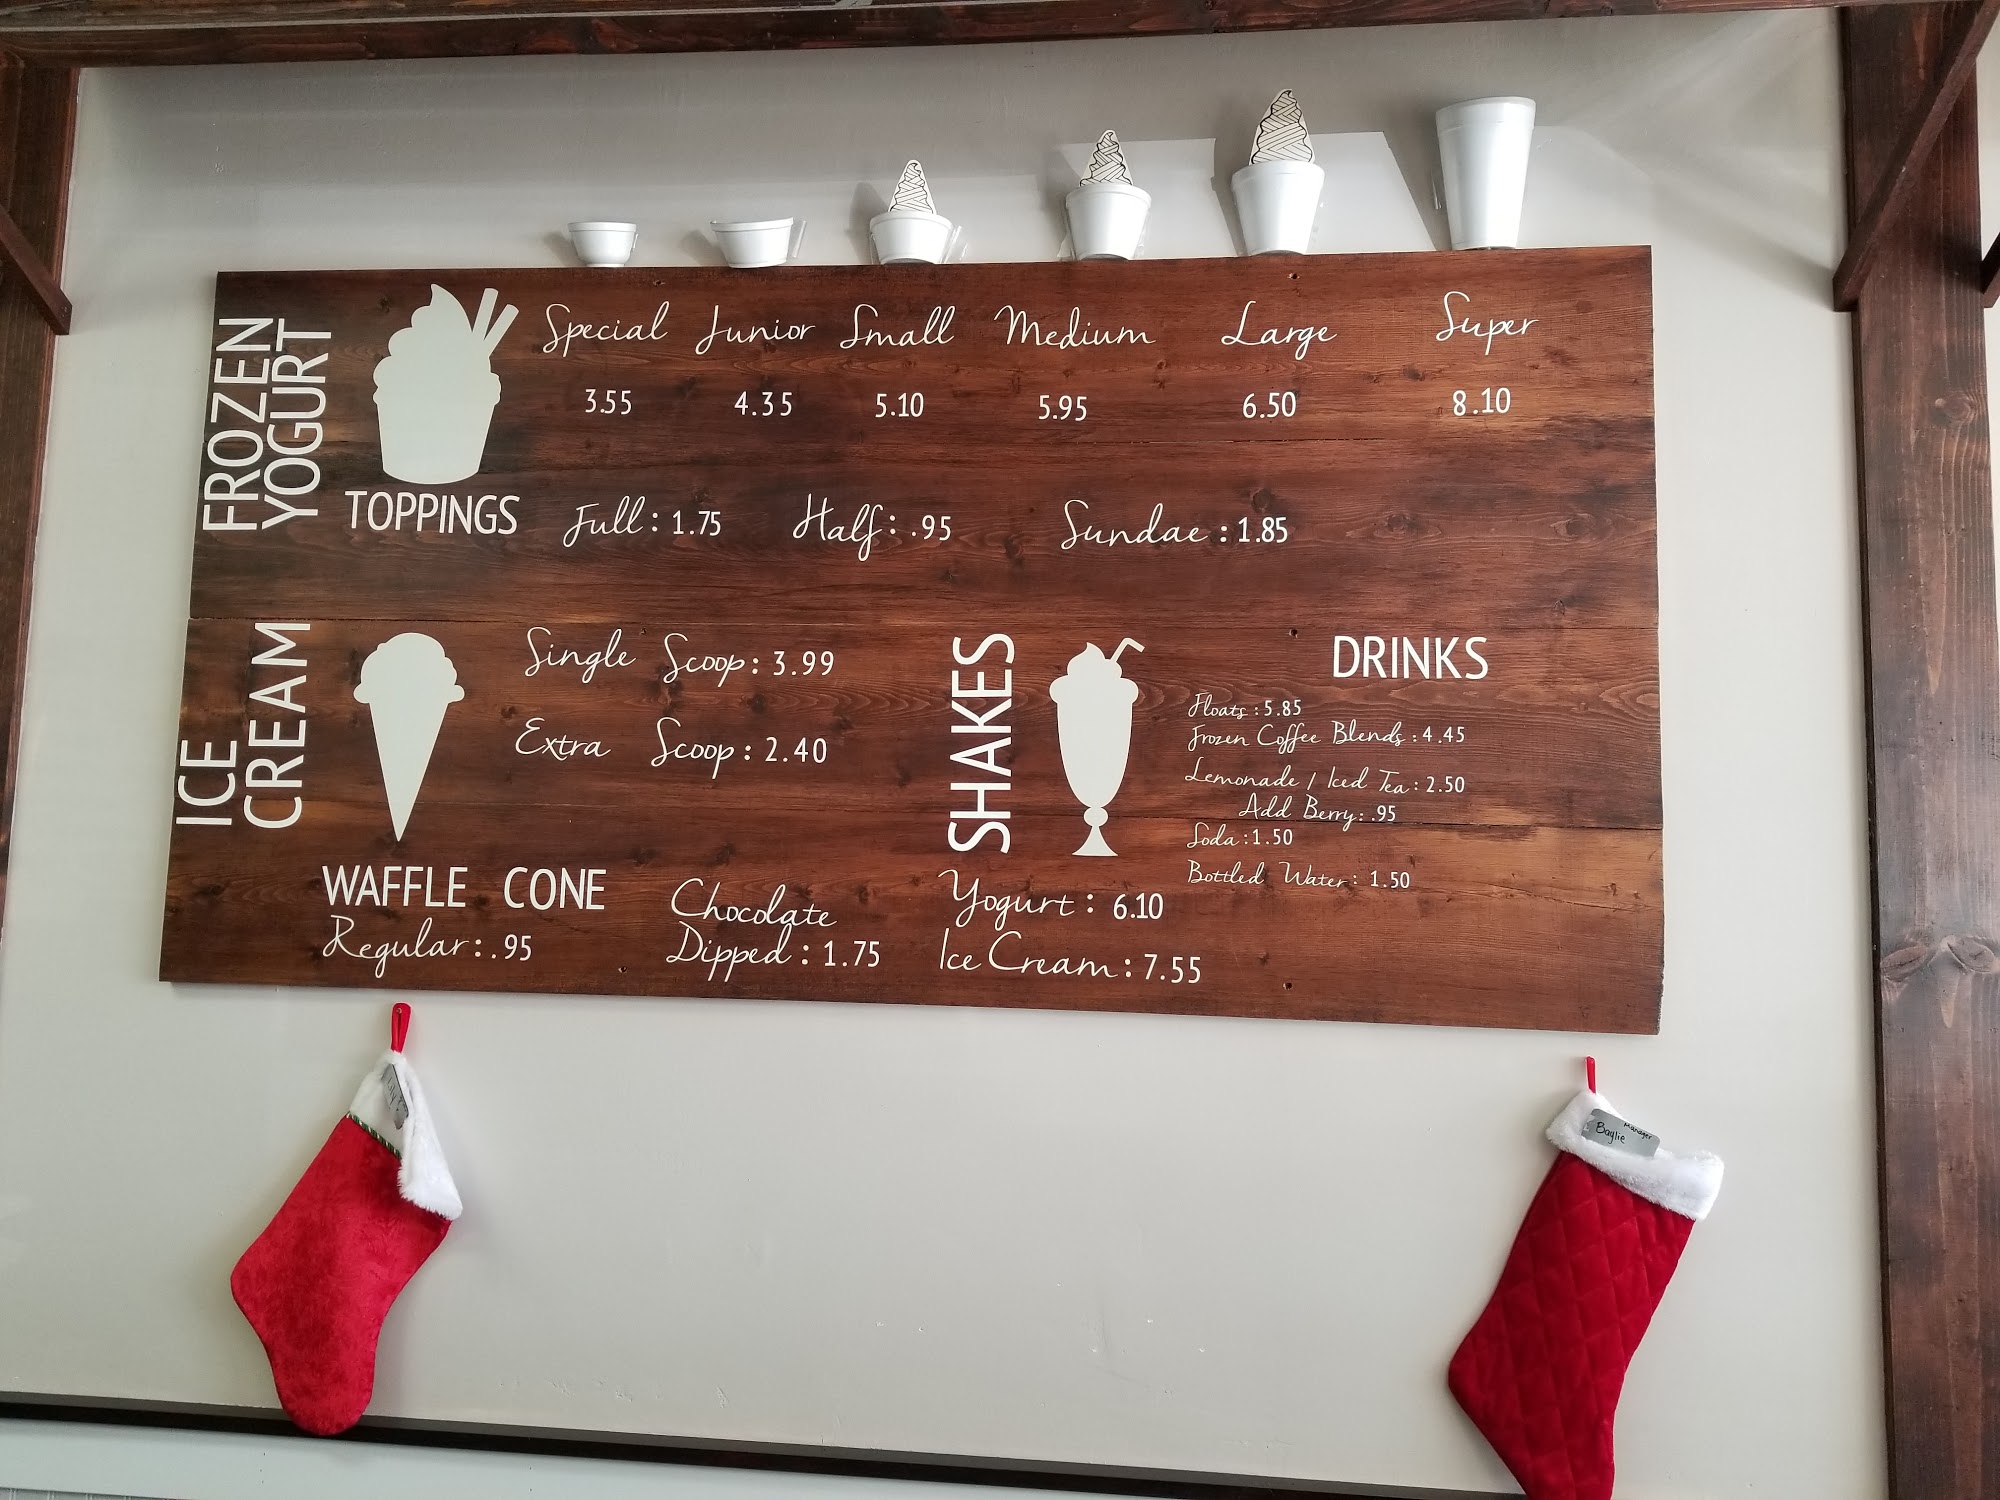 FROZEN
YOGURT
Special Junior Small Medium Large Super
3.55 4.35 5.10 5.95 6.50 8.10
TOPPINGS Full: 1.75 Half: .95 Sundae: 1.85
ICE
CREAM
Single Scoop: 3.99
Extra Scoop: 2.40
WAFFLE CONE
Regular: .95
Chocolate
Dipped: 1.75
SHAKES
Yogurt: 6.10
Ice Cream: 7.55
DRINKS
Floats: 5.85
Frozen Coffee Blends: 4.45
Lemonade / Iced Tea: 2.50
Add Berry: .95
Soda: 1.50
Bottled Water: 1.50
Manager
Baglie